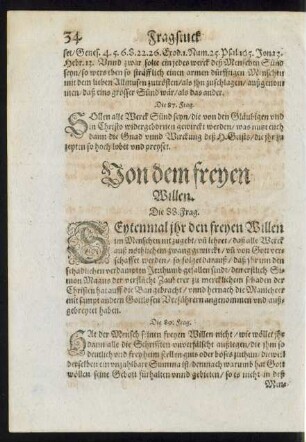 34 Fragstuck
set/ Genes. 4. 5. 6. 8. 22. 26. Exod. 1. Num. 25. Psal. 105. Jona 3.
Hebr. 13. Vnnd zwar solte ein jedes werck deß Menschen Sünd
seyn/ so were den so sträfflich einen armen dürfftigen Menschen
mit dem lieben Allmusen zutrösten/ als ihn zuschlagen/ außgenom
men, daß eins grösser Sünd wär/ als das ander.
Die 87. Frag.
SOllen alle Werck Sünd seyn/ die von den Gläubigen vnd
in Christo widergebornen gewirckt werden/ was nutzt euch
dann die Gnad vnnd Würckung deß H. Geists/ die ihr zu
zeyten so hoch lobet vnd preyset.
Von dem freyen
Willen.
Die 88. Frag.
SEytenmal ihr den freyen Willen
im Menschen nit zugebt/ vñ lehret/ daß alle Werck
auß nothlichem zwang gewirckt/ vñ von Gott ver-
schaffet werden/ so folget darauß/ daß ihr inn den
schädlichen verdampten Irrthumb gefallen sind/ den erstlich Si-
mon Magus der verflucht Zauberer zu mercklichem schaden der
Christenheit auff die Ban gebracht/ vnd hernach die Manicheer
mit sampt andern Gottlosen Verfährern angenommen vnd auß-
gebreytet haben.
Die 89. Frag.
HAt der Mensch keinen freyen Willen nicht/ wie wöllet ihr
dann alle die Schrifften vnuerfälscht außlegen/ die jhm so
deutlich vnd frey heim stellen guts oder böses zuthun/ die weil
derselben ein vnzahlbare Summa ist/ demnach warumb hat Gott
wöllen seine Gebott fürhalten vnnd gebieten/ so es nicht in deß
Men-